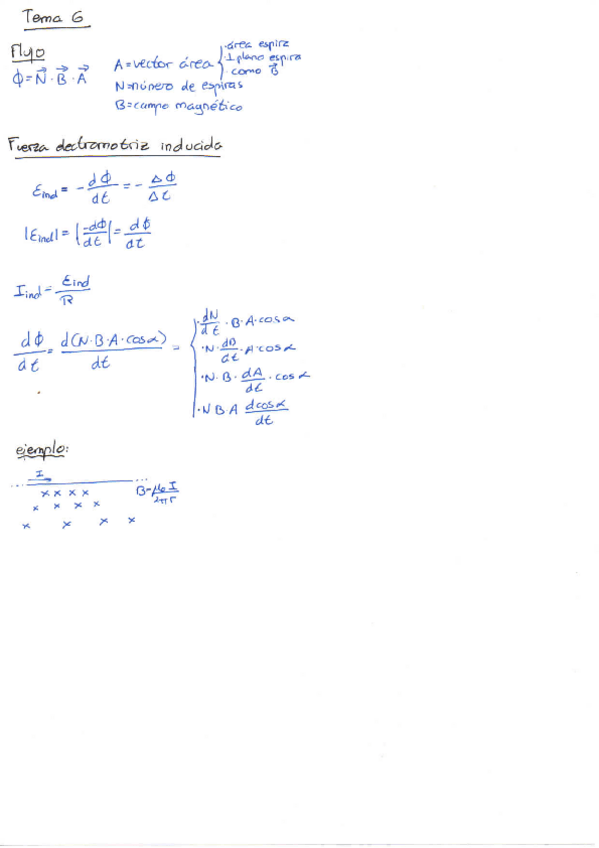 Tema 6
Flujo
Φ = N⃗ · B⃗ · A⃗
A = vector área { · área espira
· ⊥ plano espira
· como B⃗
N = número de espiras
B = campo magnético
Fuerza electromotriz inducida
Ɛind = - dΦ/dt = - ΔΦ/Δt
|Ɛind| = |-dΦ/dt| = dΦ/dt
Iind = Ɛind/R
dΦ/dt = d(N·B·A·cosα)/dt = { · dN/dt · B·A·cosα
· N · dB/dt · A·cosα
· N·B · dA/dt · cosα
· N B A dcosα/dt
ejemplo:
I
... ...
x x x x
B = μ₀ I/2πr
x x x x
x x x x